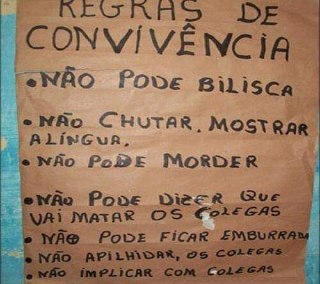 REGRAS DE
CONVIVÊNCIA
• NÃO PODE BILISCA
• NÃO CHUTAR. MOSTRAR
A LÍNGUA.
• NÃO PODE MORDER
• NÃO PODE DIZER QUE
VAI MATAR OS COLEGAS
• NÃO PODE FICAR EMBURRADA
• NÃO APILHIDAR, OS COLEGAS
• NÃO IMPLICAR COM COLEGAS